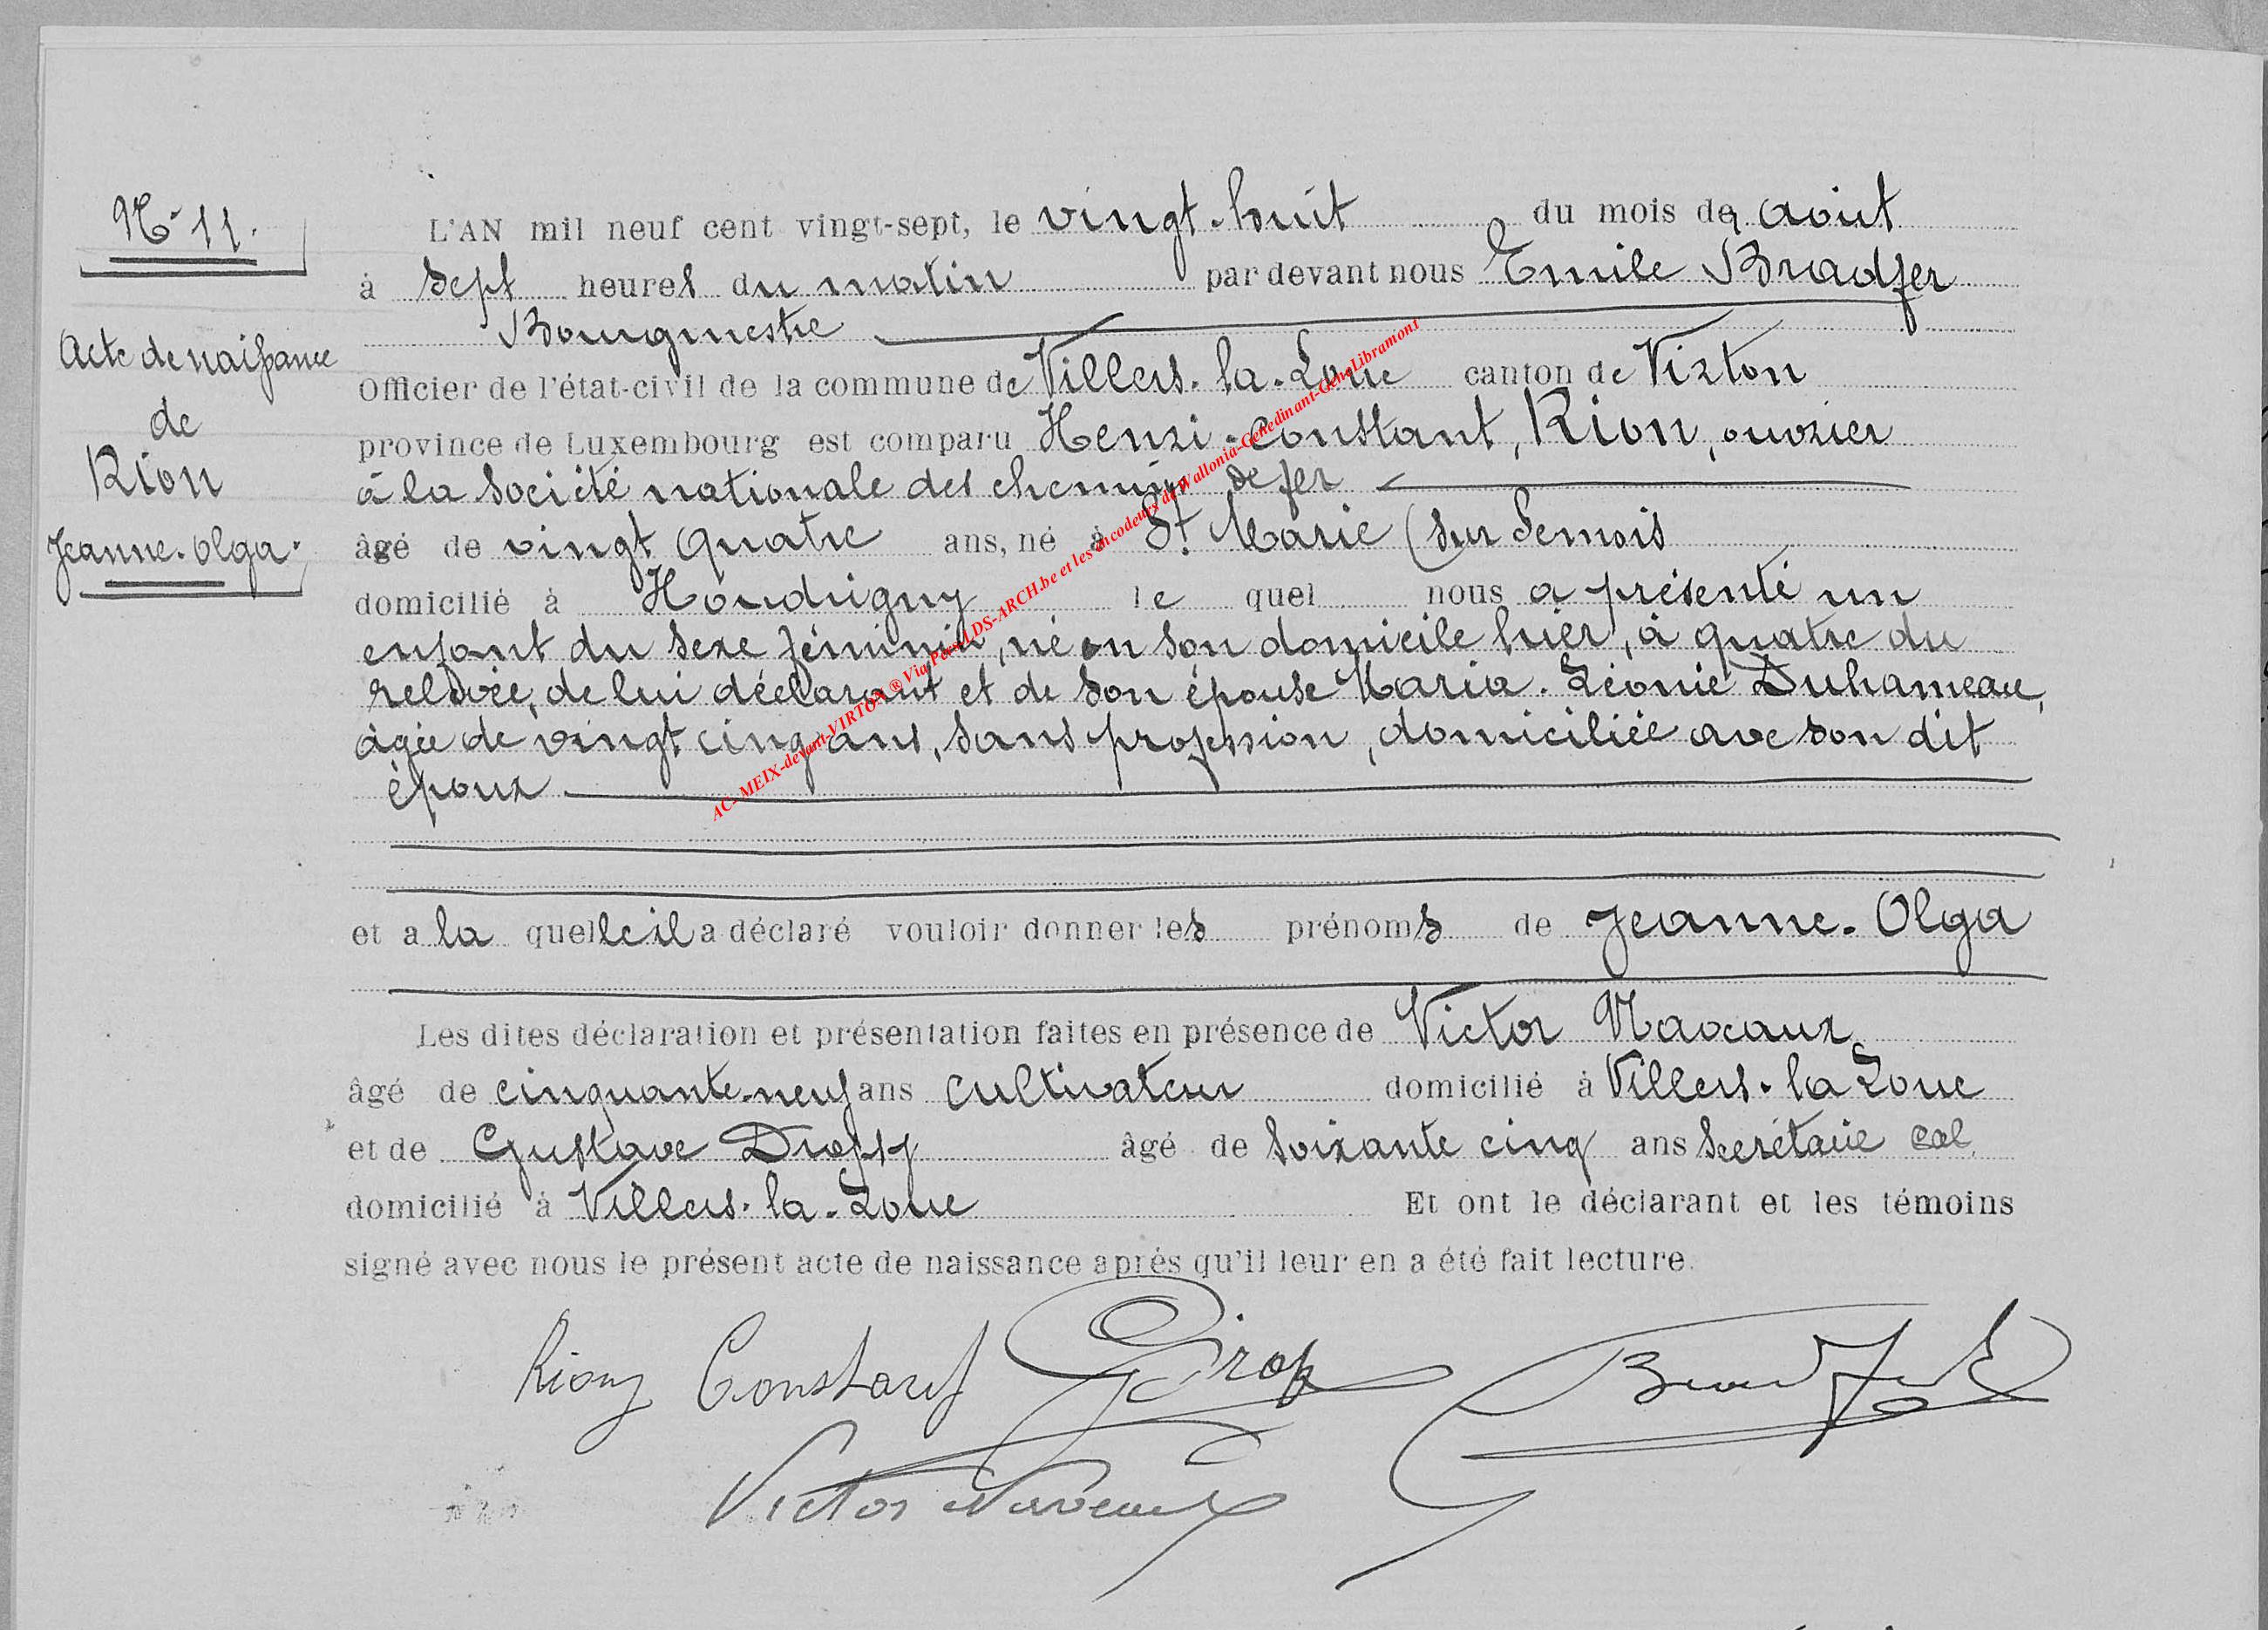 N° 11.
Acte de naissance
de
Rion
Jeanne-Olga.
L'AN mil neuf cent vingt-sept, le vingt-huit du mois de août
à sept heures du matin par devant nous Emile Bradfer
Bourgmestre
Officier de l'état-civil de la commune de Villers-la-Loue canton de Virton
province de Luxembourg est comparu Henri-Constant, Rion, ouvrier
à la Société nationale des chemins de fer
âgé de vingt quatre ans, né à St Marie (sur Semois
domicilié à Houdrigny le quel nous a présenté un
enfant du sexe féminin, né en son domicile hier, à quatre du
relevée, de lui déclarant et de son épouse Maria-Léonie Duhameau,
âgée de vingt cinq ans, sans profession, domiciliée avec son dit
époux
et a la quelle il a déclaré vouloir donner les prénoms de Jeanne-Olga
Les dites déclaration et présentation faites en présence de Victor Navaux
âgé de cinquante-neuf ans cultivateur domicilié à Villers-la Loue
et de Gustave âgé de soixante cinq ans secrétaire cal.
domicilié à Villers-la-Loue Et ont le déclarant et les témoins
signé avec nous le présent acte de naissance après qu'il leur en a été fait lecture.
Rion Constant Bradfer
Victor Naveaux
AC- MEIX-devant-VIRTON ® Via Peri LDS-ARCH.be et les encodeurs de Wallonia-Genedinant-GeneLibramont